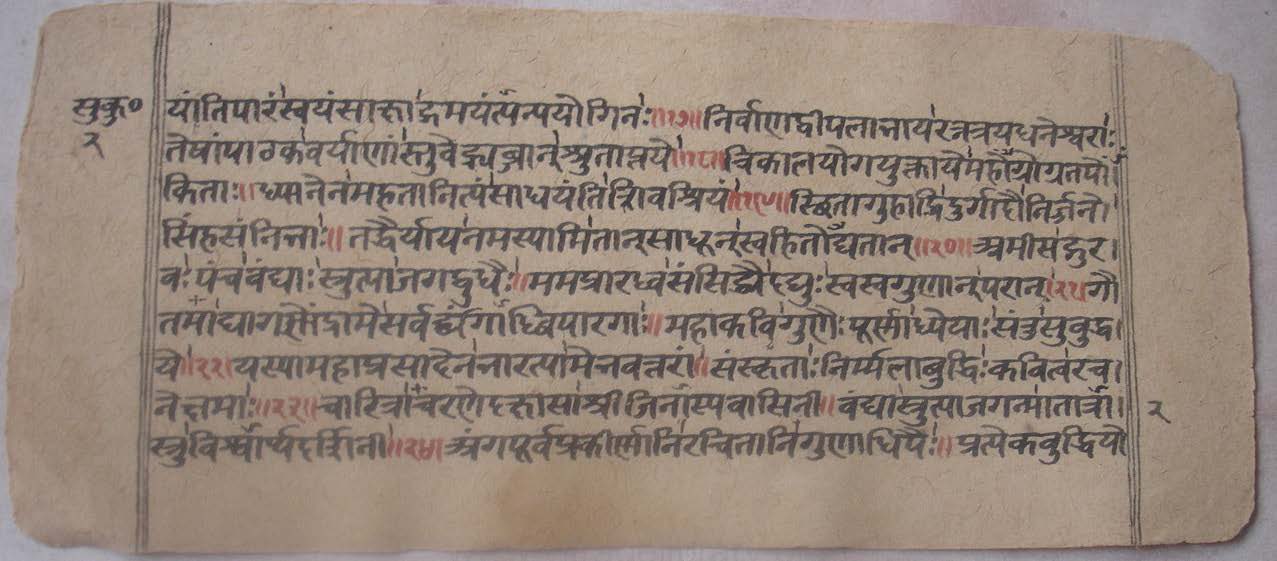 सुकु०
२
यांतिपारंस्वयंसाक्षाद्गमयंत्यन्ययोगिनः॥१७॥निर्वाणद्वीपलाभायरत्नत्रयधनेश्वराः
तेषांपाठकवर्याणांस्तुवेह्यब्जान्श्रुताप्तये॥१८॥त्रिकालयोगयुक्तायेमहोग्रोग्रतपों
किताः॥ध्यानेनमहतानित्यंसाधयंतिशिवश्रियं॥१९॥स्थितागुहाद्रिदुर्गादौनिर्जने
सिंहसंनिभाः॥तद्धैर्यायनमस्यामितान्साधून्स्वहितोद्यतान्॥२०॥अमीसद्गुर
वःपंचवंद्याःस्तुत्याजगद्बुधैः॥ममप्रारब्धसंसिद्ध्यैदद्युःस्वस्वगुणान्परान्॥२१॥गौ
तमाद्यागणेंद्रामेसर्वर्द्ध्यंगाब्धिपारगाः॥महाकविगुणैःपूर्णाध्येयाःसंतुसुबुद्ध
ये॥२२॥यस्यामहाप्रसादेनभारत्यामेभवत्तरां॥संस्कृताःनिर्मलाबुद्धिःकवित्वरच
नेक्षमाः॥२३॥चारित्राचरणेदक्षासाश्रीजिनास्यवासिनी॥वंद्यास्तुत्याजगन्मातात्रा
स्तुविश्वार्थदर्शिनी॥२४॥अंगपूर्वप्रकीर्णानिरचितानिगुणाधिपैः॥प्रत्येकबुद्धियो
२